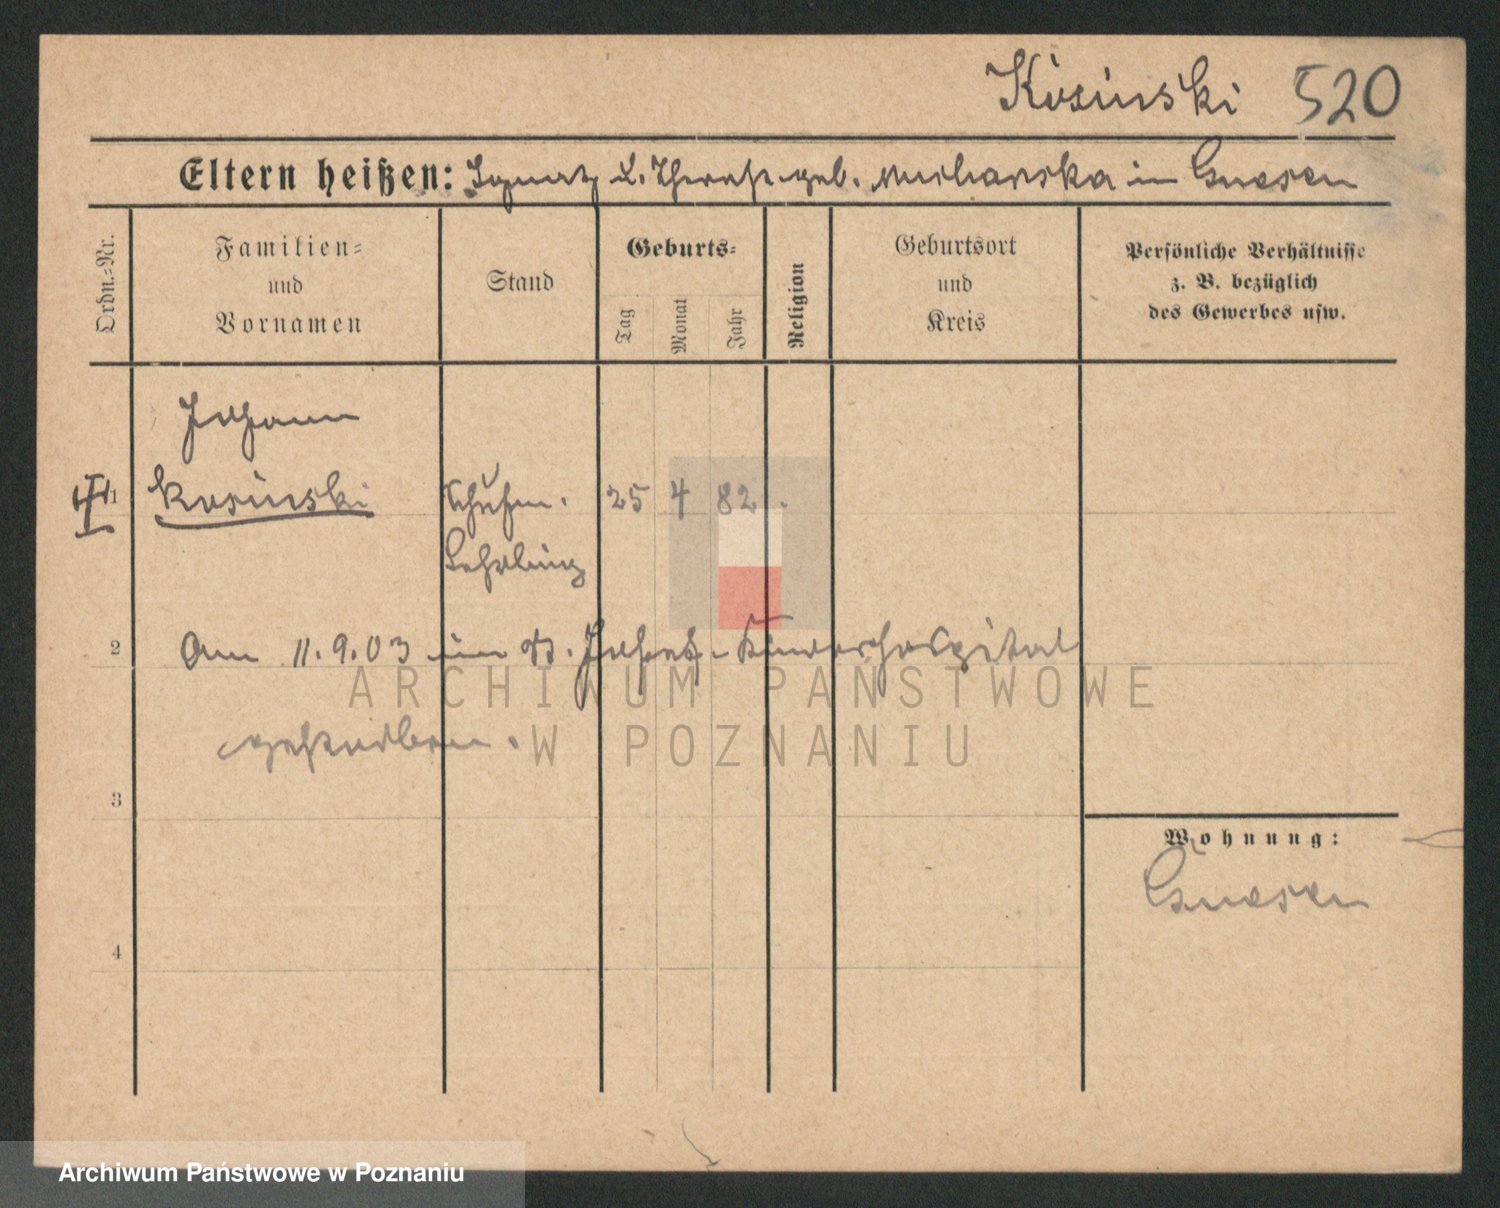 Kosinski 520
Eltern heißen: Ignatz u. Therese geb. Michalska in Gnesen
Ordn.=Nr.
Familien=
und
Vornamen
Stand
Geburts=
Tag
Monat
Jahr
Religion
Geburtsort
und
Kreis
Persönliche Verhältnisse
z. B. bezüglich
des Gewerbes usw.
Johann
1 Kosinski Schuhm. 25 4 82
Lehrling
2 Am 11.9.03 im St. Josefs-Kinderhospital
gestorben.
3
4
Wohnung:
Gnesen
ARCHIWUM PAŃSTWOWE
W POZNANIU
Archiwum Państwowe w Poznaniu